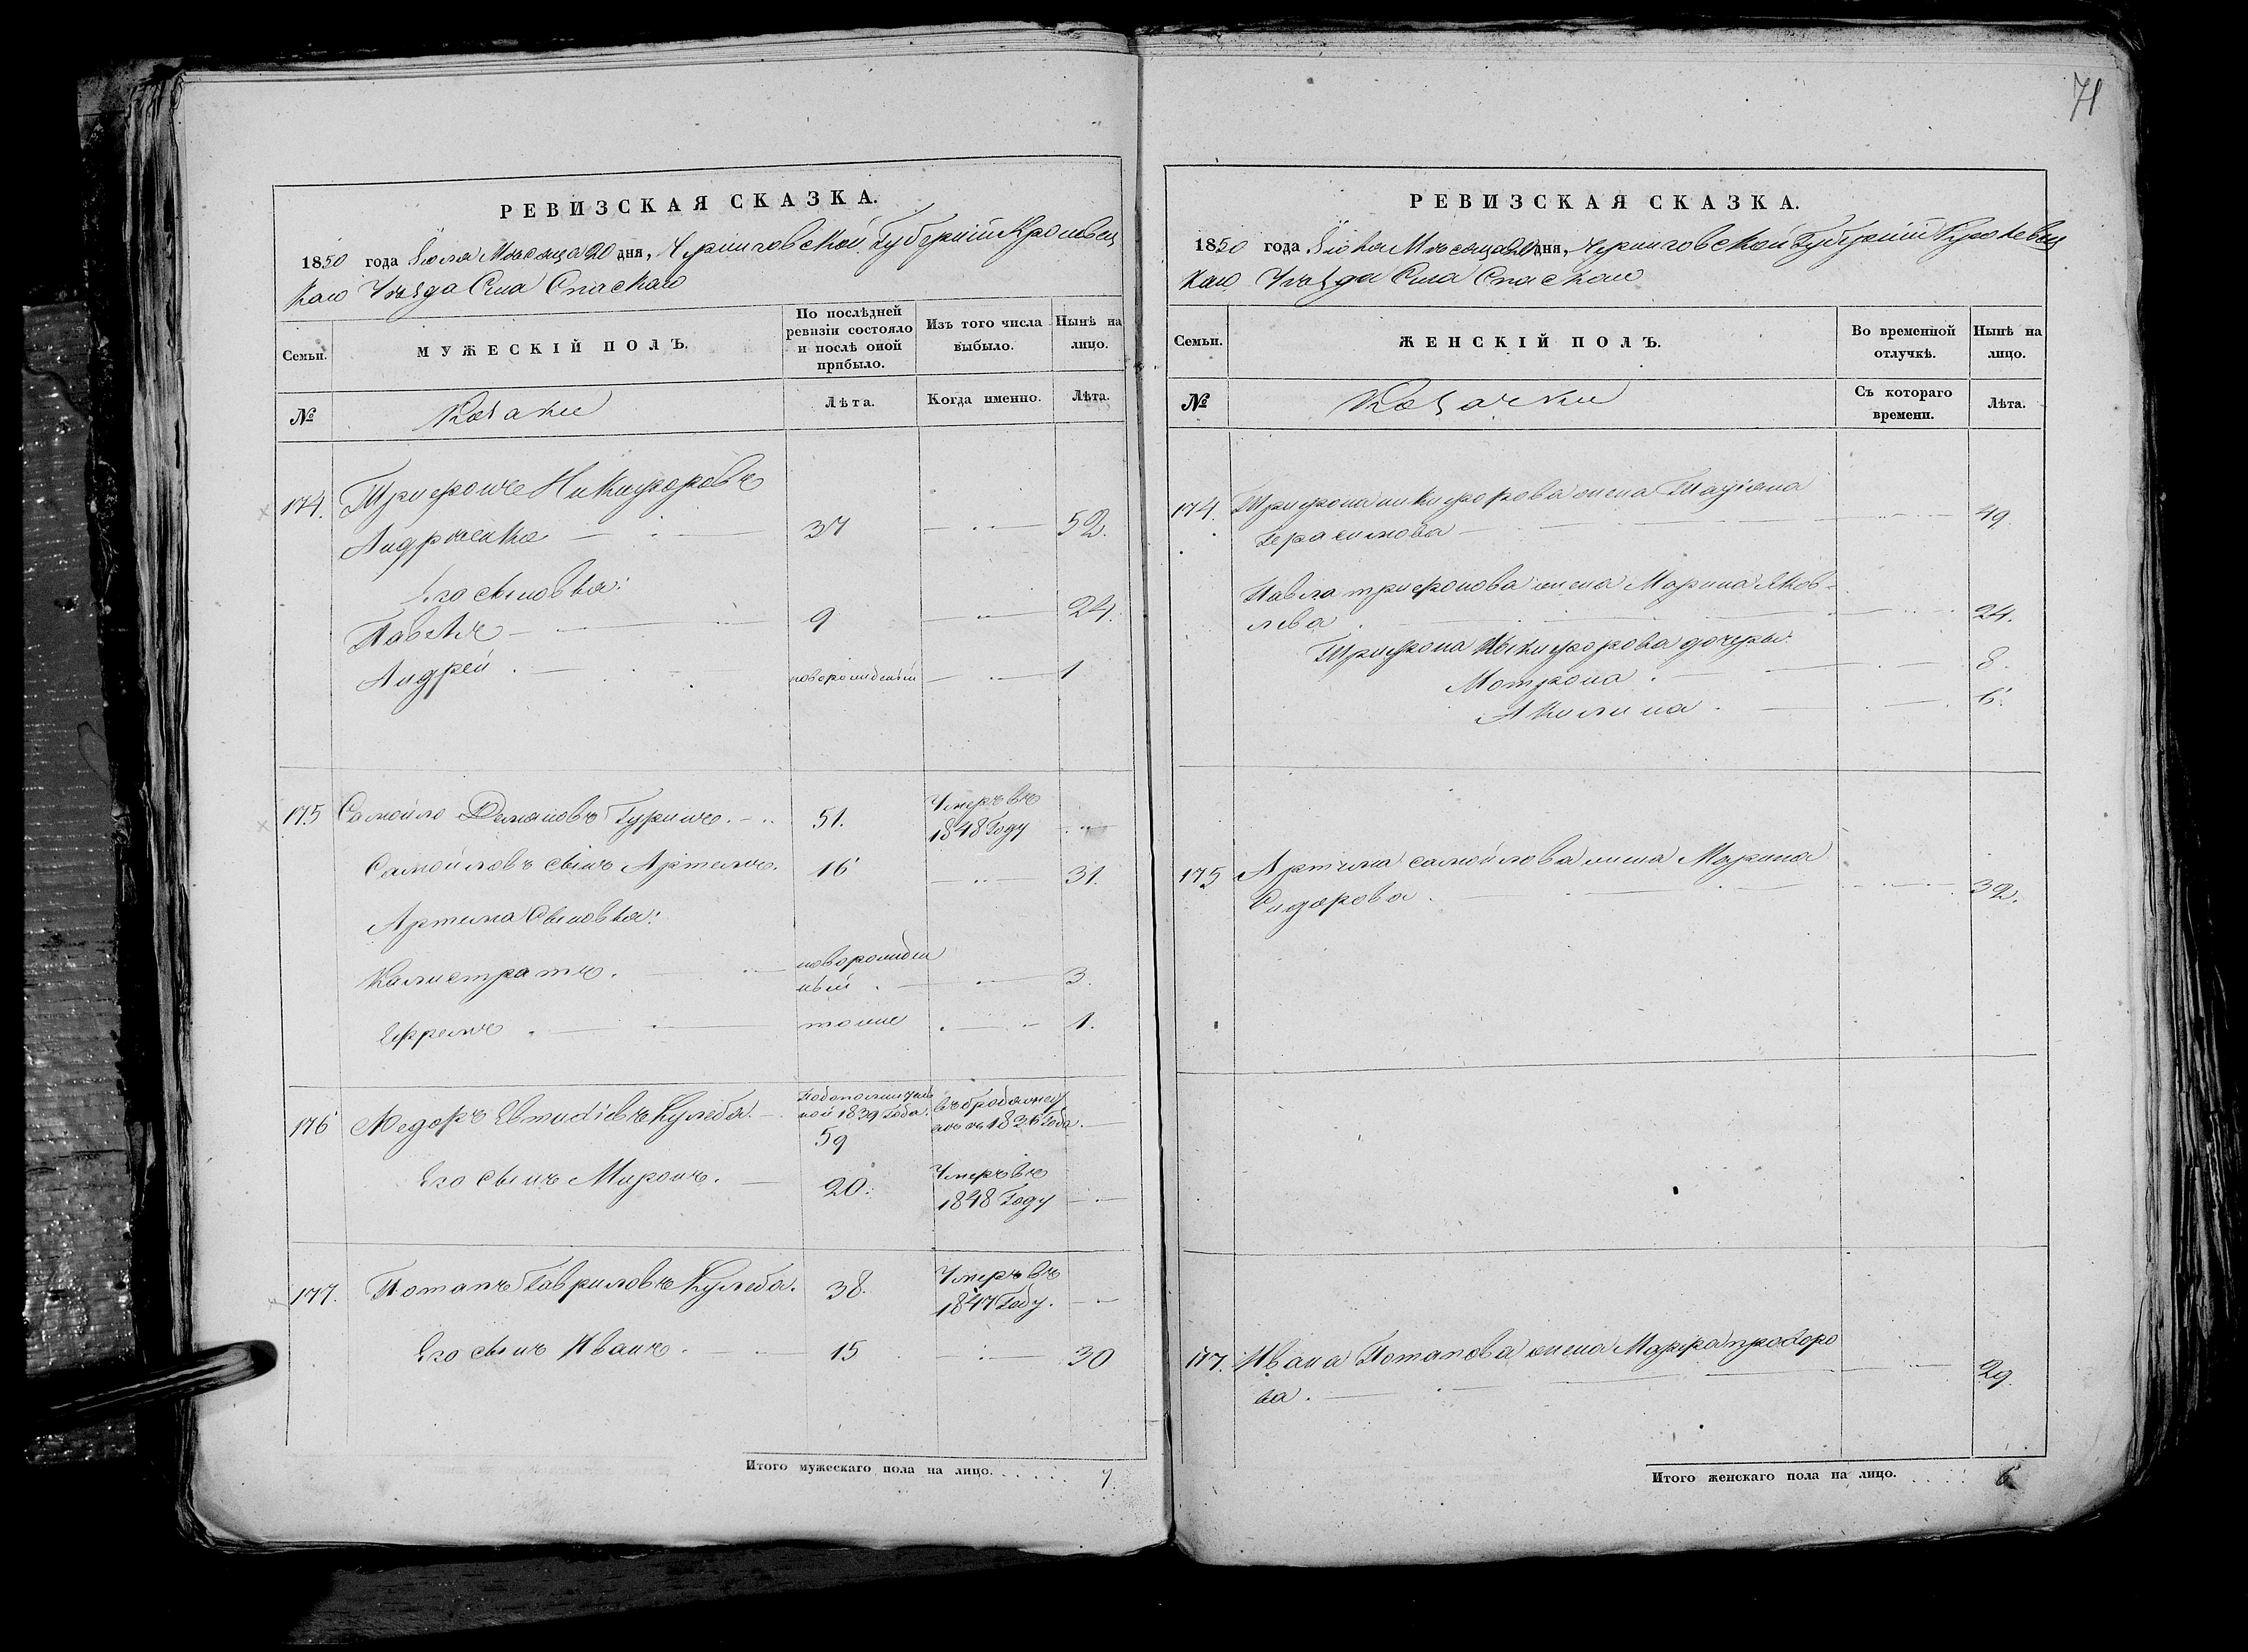 71
РЕВИЗСКАЯ СКАЗКА.
1850 года Іюля Мѣсяца 20 дня, Черниговской Губерніи Кролевец
каго Уѣзда Села Спаскаго
Семьи.
МУЖЕСКІЙ ПОЛЪ.
По послѣдней ревизіи состояло и послѣ оной прибыло.
Изъ того числа выбыло.
Нынѣ на лицо.
№
Козаки
Лѣта.
Когда именно.
Лѣта.
174. Трифонъ Никифоровъ
Андрѣенко 37 52.
Его сыновья:
Павелъ 9 24.
Андрей новорожденый 1
175 Самойло Демяновъ Гуринъ. 51. Умеръ въ
1848 Году
Самойловъ сынъ Артемъ. 16 31.
Артема Сыновья:
Калистратъ. новорожден
ный 3.
Ефремъ тоже 1.
176 Федоръ Кулеба. 
ной 1839 Года. 1836 Года.
59
Его сынъ Миронъ. 20. Умеръ въ
1848 Году
177. Потапъ Гавриловъ Кулеба. 38. Умеръ въ
1847 Году.
Его сынъ Иванъ. 15 30
Итого мужескаго пола на лицо. 7
РЕВИЗСКАЯ СКАЗКА.
1850 года Іюля Мѣсяца 20 дня, Черниговской Губерніи Кролевец
каго Уѣзда Села Спаскаго
Семьи.
ЖЕНСКІЙ ПОЛЪ.
Во временной отлучкѣ.
Нынѣ на лицо.
№
Козачки
Съ котораго времени.
Лѣта.
174. Трифона никифорова жена Татіяна
Герасимова 49
Павла трифонова жена Марина Яков-
лева 24.
Трифона Никифорова дочеры:
Мотрона 8.
Акилина 6.
175 Артема самойлова жена Марина
Сидорова. 32.
177. Ивана Потапова жена Марфа прохоро
ва. 29.
Итого женскаго пола на лицо. 6